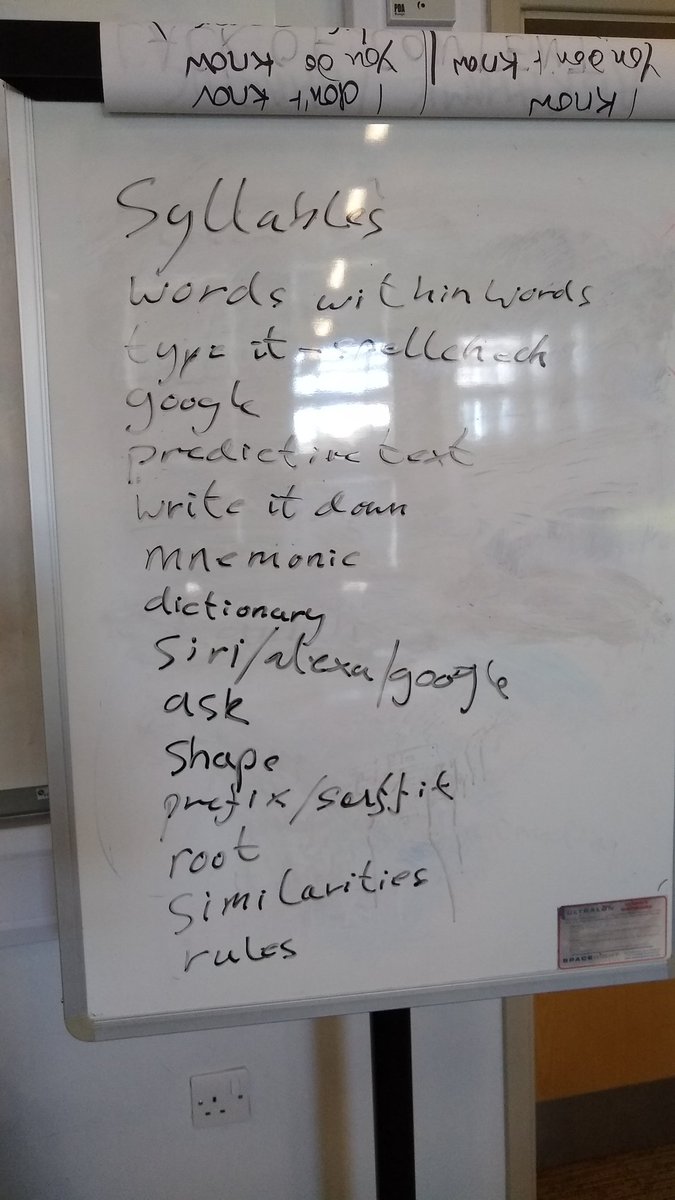 PDA
I know | I don't know
You don't know | You do know
Syllables
words within words
type it - spellcheck
google
predictive text
write it down
mnemonic
dictionary
Siri/alexa/google
ask
shape
prefix/suffix
root
similarities
rules